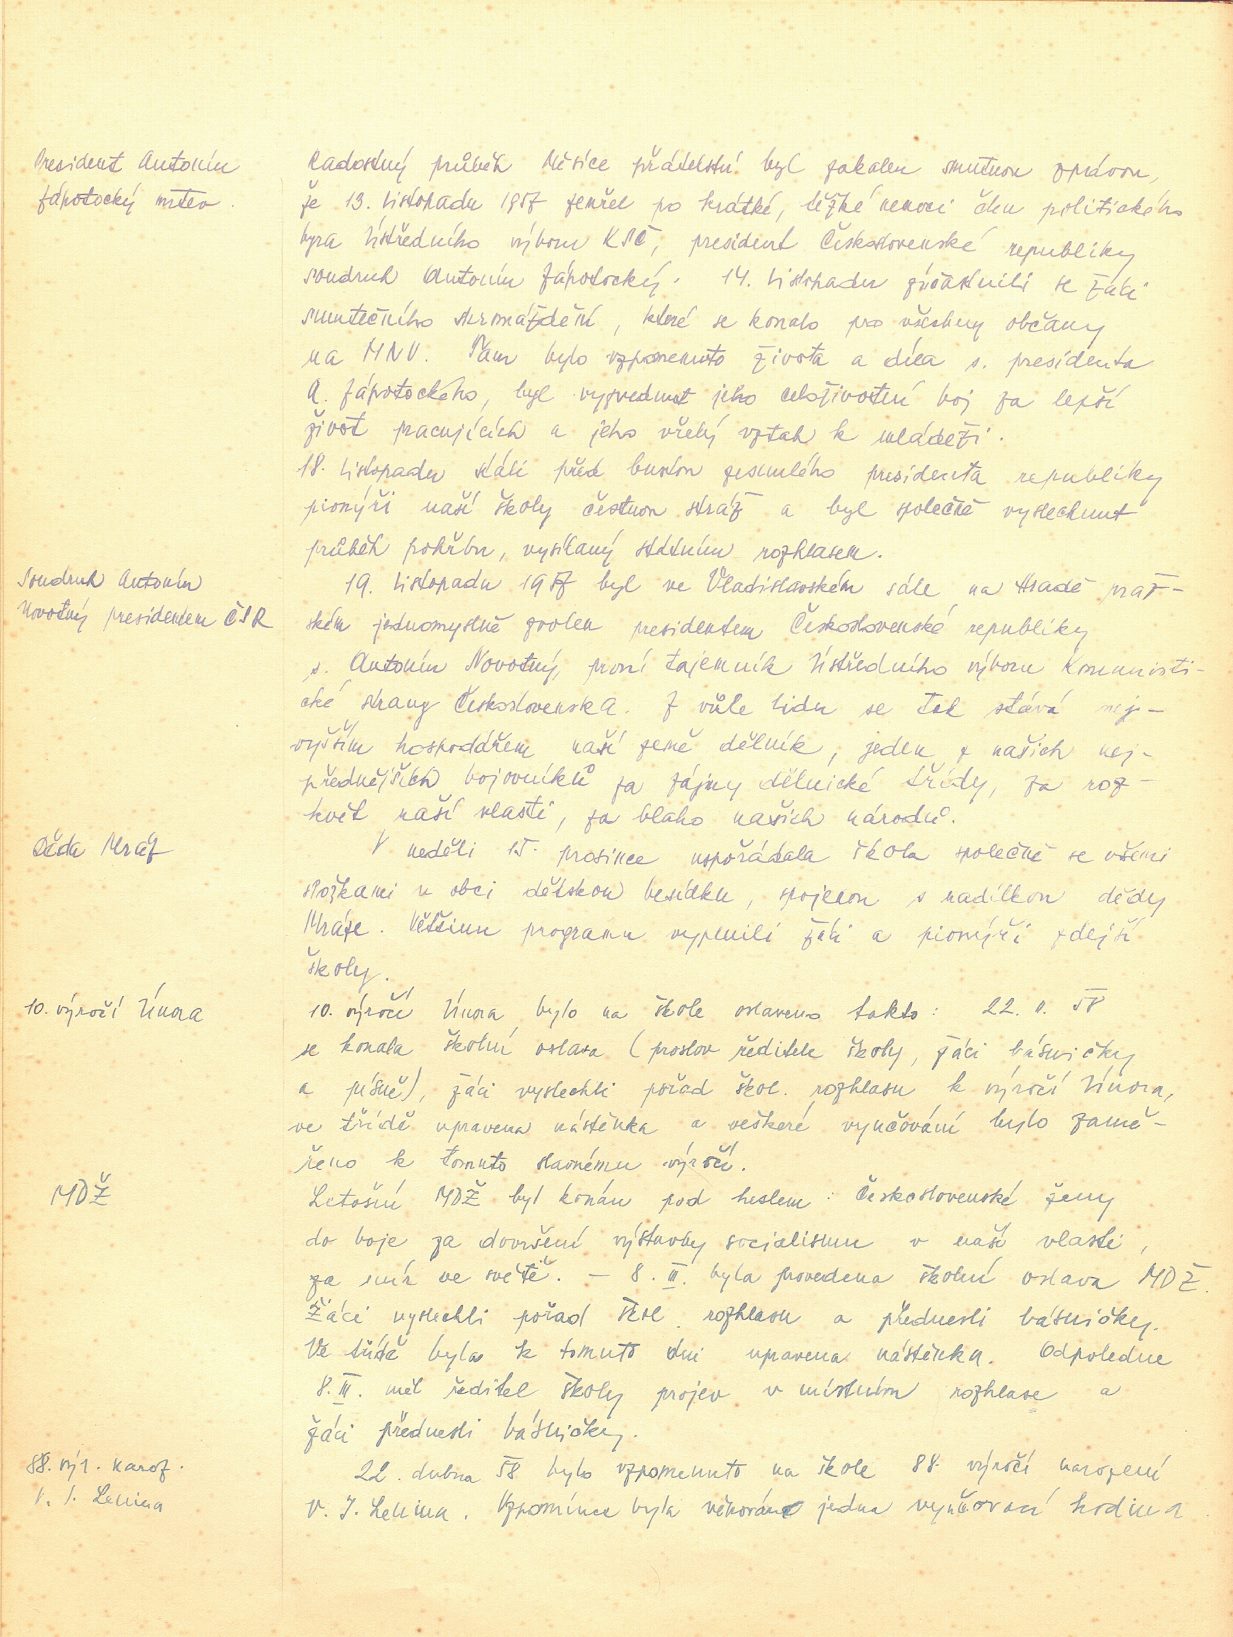 President Antonín
Zápotocký mrtev.
Radostný průběh Měsíce přátelství byl zakalen smutnou zprávou,
že 13. listopadu 1957 zemřel po krátké, těžké nemoci člen politického
byra Ústředního výboru KSČ, president Československé republiky
soudruh Antonín Zápotocký. 14. listopadu zúčastnili se žáci
smutečního shromáždění, které se konalo pro všechny občany
na MNV. Tam bylo vzpomenuto života a díla s. presidenta
A. Zápotockého, byl vyzvednut jeho celoživotní boj za lepší
život pracujících a jeho vřelý vztah k mládeži.
18. listopadu stáli před bustou zesnulého presidenta republiky
pionýři naší školy čestnou stráž a byl společně vyslechnut
průběh pohřbu, vysílaný státním rozhlasem.
Soudruh Antonín
Novotný presidentem ČSR
19. listopadu 1957 byl ve Vladislavském sále na Hradě praž-
ském jednomyslně zvolen presidentem Československé republiky
s. Antonín Novotný, první tajemník Ústředního výboru Komunisti-
cké strany Československa. Z vůle lidu se tak stává nej-
vyšším hospodářem naší země dělník, jeden z našich nej-
přednějších bojovníků za zájmy dělnické třídy, za roz-
květ naší vlasti, za blaho našich národů.
Děda Mráz
V neděli 15. prosince uspořádala škola společně se všemi
složkami v obci dětskou besídku, spojenou s nadílkou dědy
Mráze. Většinu programu vyplnili žáci a pionýři zdejší
školy.
10. výročí Února
10. výročí Února bylo na škole oslaveno takto: 22. II. 58
se konala školní oslava (proslov ředitele školy, žáci básničky
a písně), žáci vyslechli pořad škol. rozhlasu k výročí Února,
ve třídě upravena nástěnka a veškeré vyučování bylo zamě-
řeno k tomuto slavnému výročí.
MDŽ
Letošní MDŽ byl konán pod heslem: Československé ženy
do boje za dovršení výstavby socialismu v naší vlasti,
za mír ve světě. – 8. III. byla provedena školní oslava MDŽ.
Žáci vyslechli pořad škol. rozhlasu a přednesli básničky.
Ve třídě byla k tomuto dni upravena nástěnka. Odpoledne
8. III. měl ředitel školy projev v místním rozhlase a
žáci přednesli básničky.
88. výr. naroz.
V. I. Lenina
22. dubna 58 bylo vzpomenuto na škole 88. výročí narození
V. I. Lenina. Vzpomínce byla věnována jedna vyučovací hodina